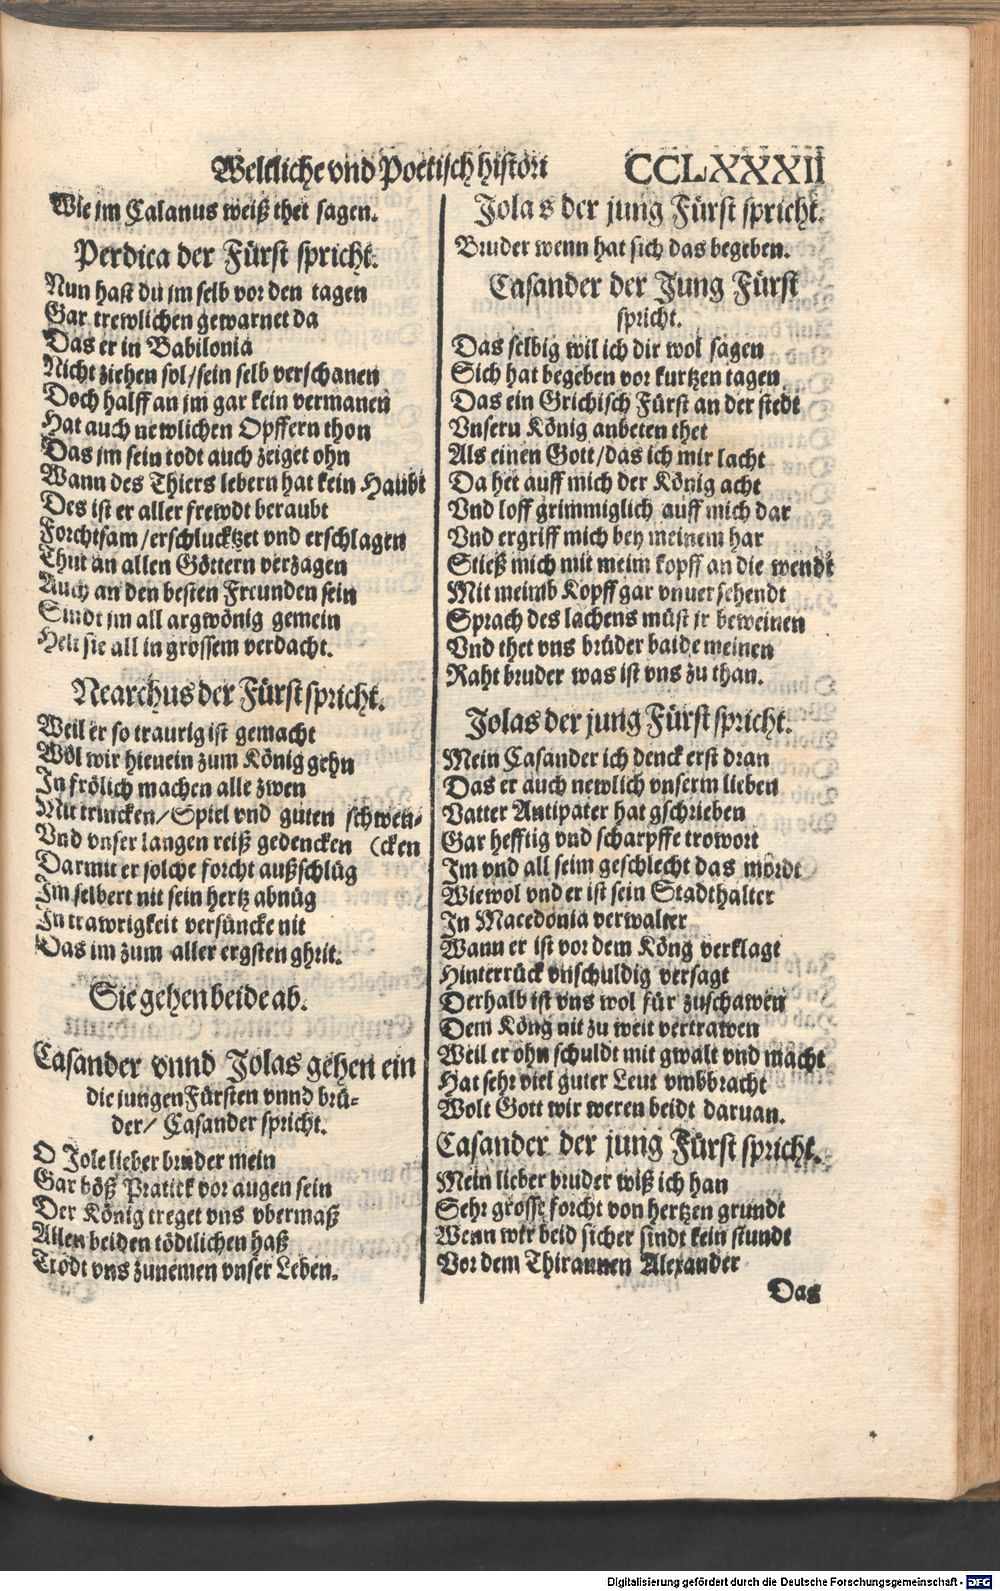 Weltliche vnd Poetisch histori CCLXXXII
Wie jm Calanus weiß thet sagen.
Perdica der Fürst spricht.
Nun hast du jm selb vor den tagen
Gar trewlichen gewarnet da
Das er in Babilonia
Nicht ziehen sol/sein selb verschanen
Doch halff an jm gar kein vermanen
Hat auch newlichen Opffern thon
Das jm sein todt auch zeiget ohn
Wann des Thiers lebern hat kein Haubt
Des ist er aller frewdt beraubt
Forchtsam/erschlucktzet vnd erschlagen
Thut an allen Göttern verzagen
Auch an den besten Freunden sein
Sindt jm all argwönig gemein
Helt sie all in grossem verdacht.
Nearchus der Fürst spricht.
Weil er so traurig ist gemacht
Wöl wir hienein zum König gehn
In frölich machen alle zwen
Mit trincken/Spiel vnd guten schwen-
Vnd vnser langen reiß gedencken (cken
Darmit er solche forcht außschlüg
Im selbert nit sein hertz abnüg
In trawrigkeit versüncke nit
Das im zum aller ergsten ghrit.
Sie gehen beide ab.
Casander vnnd Jolas gehen ein
die jungen Fürsten vnnd brü-
der/ Casander spricht.
O Jole lieber bruder mein
Gar böß Pratick vor augen sein
Der König treget vns vbermaß
Allen beiden tödtlichen haß
Trödt vns zunemen vnser Leben.
Jolas der jung Fürst spricht.
Bruder wenn hat sich das begeben.
Casander der Jung Fürst
spricht.
Das selbig wil ich dir wol sagen
Sich hat begeben vor kurtzen tagen
Das ein Grichisch Fürst an der stedt
Vnsern König anbeten thet
Als einen Gott/das ich mir lacht
Da het auff mich der König acht
Vnd loff grimmiglich auff mich dar
Vnd ergriff mich bey meinem har
Stieß mich mit meim kopff an die wendt
Mit meimb Kopff gar vnuersehendt
Sprach des lachens müst jr beweinen
Vnd thet vns brüder baide meinen
Raht bruder was ist vns zu than.
Jolas der jung Fürst spricht.
Mein Casander ich denck erst dran
Das er auch newlich vnserm lieben
Vatter Antipater hat gschrieben
Gar hefftig vnd scharpffe trowort
Im vnd all seim geschlecht das mördt
Wiewol vnd er ist sein Stadthalter
In Macedonia verwalter
Wann er ist vor dem Köng verklagt
Hinterrück vnschuldig versagt
Derhalb ist vns wol für zuschawen
Dem Köng nit zu weit vertrawen
Weil er ohn schuldt mit gwalt vnd macht
Hat sehr viel guter Leut vmbbracht
Wolt Gott wir weren beidt daruan.
Casander der jung Fürst spricht.
Mein lieber bruder wiß ich han
Sehr grosse forcht von hertzen grundt
Wenn wir beid sicher sindt kein stundt
Vor dem Thirannen Alexander
Das
Digitalisierung gefördert durch die Deutsche Forschungsgemeinschaft - DFG